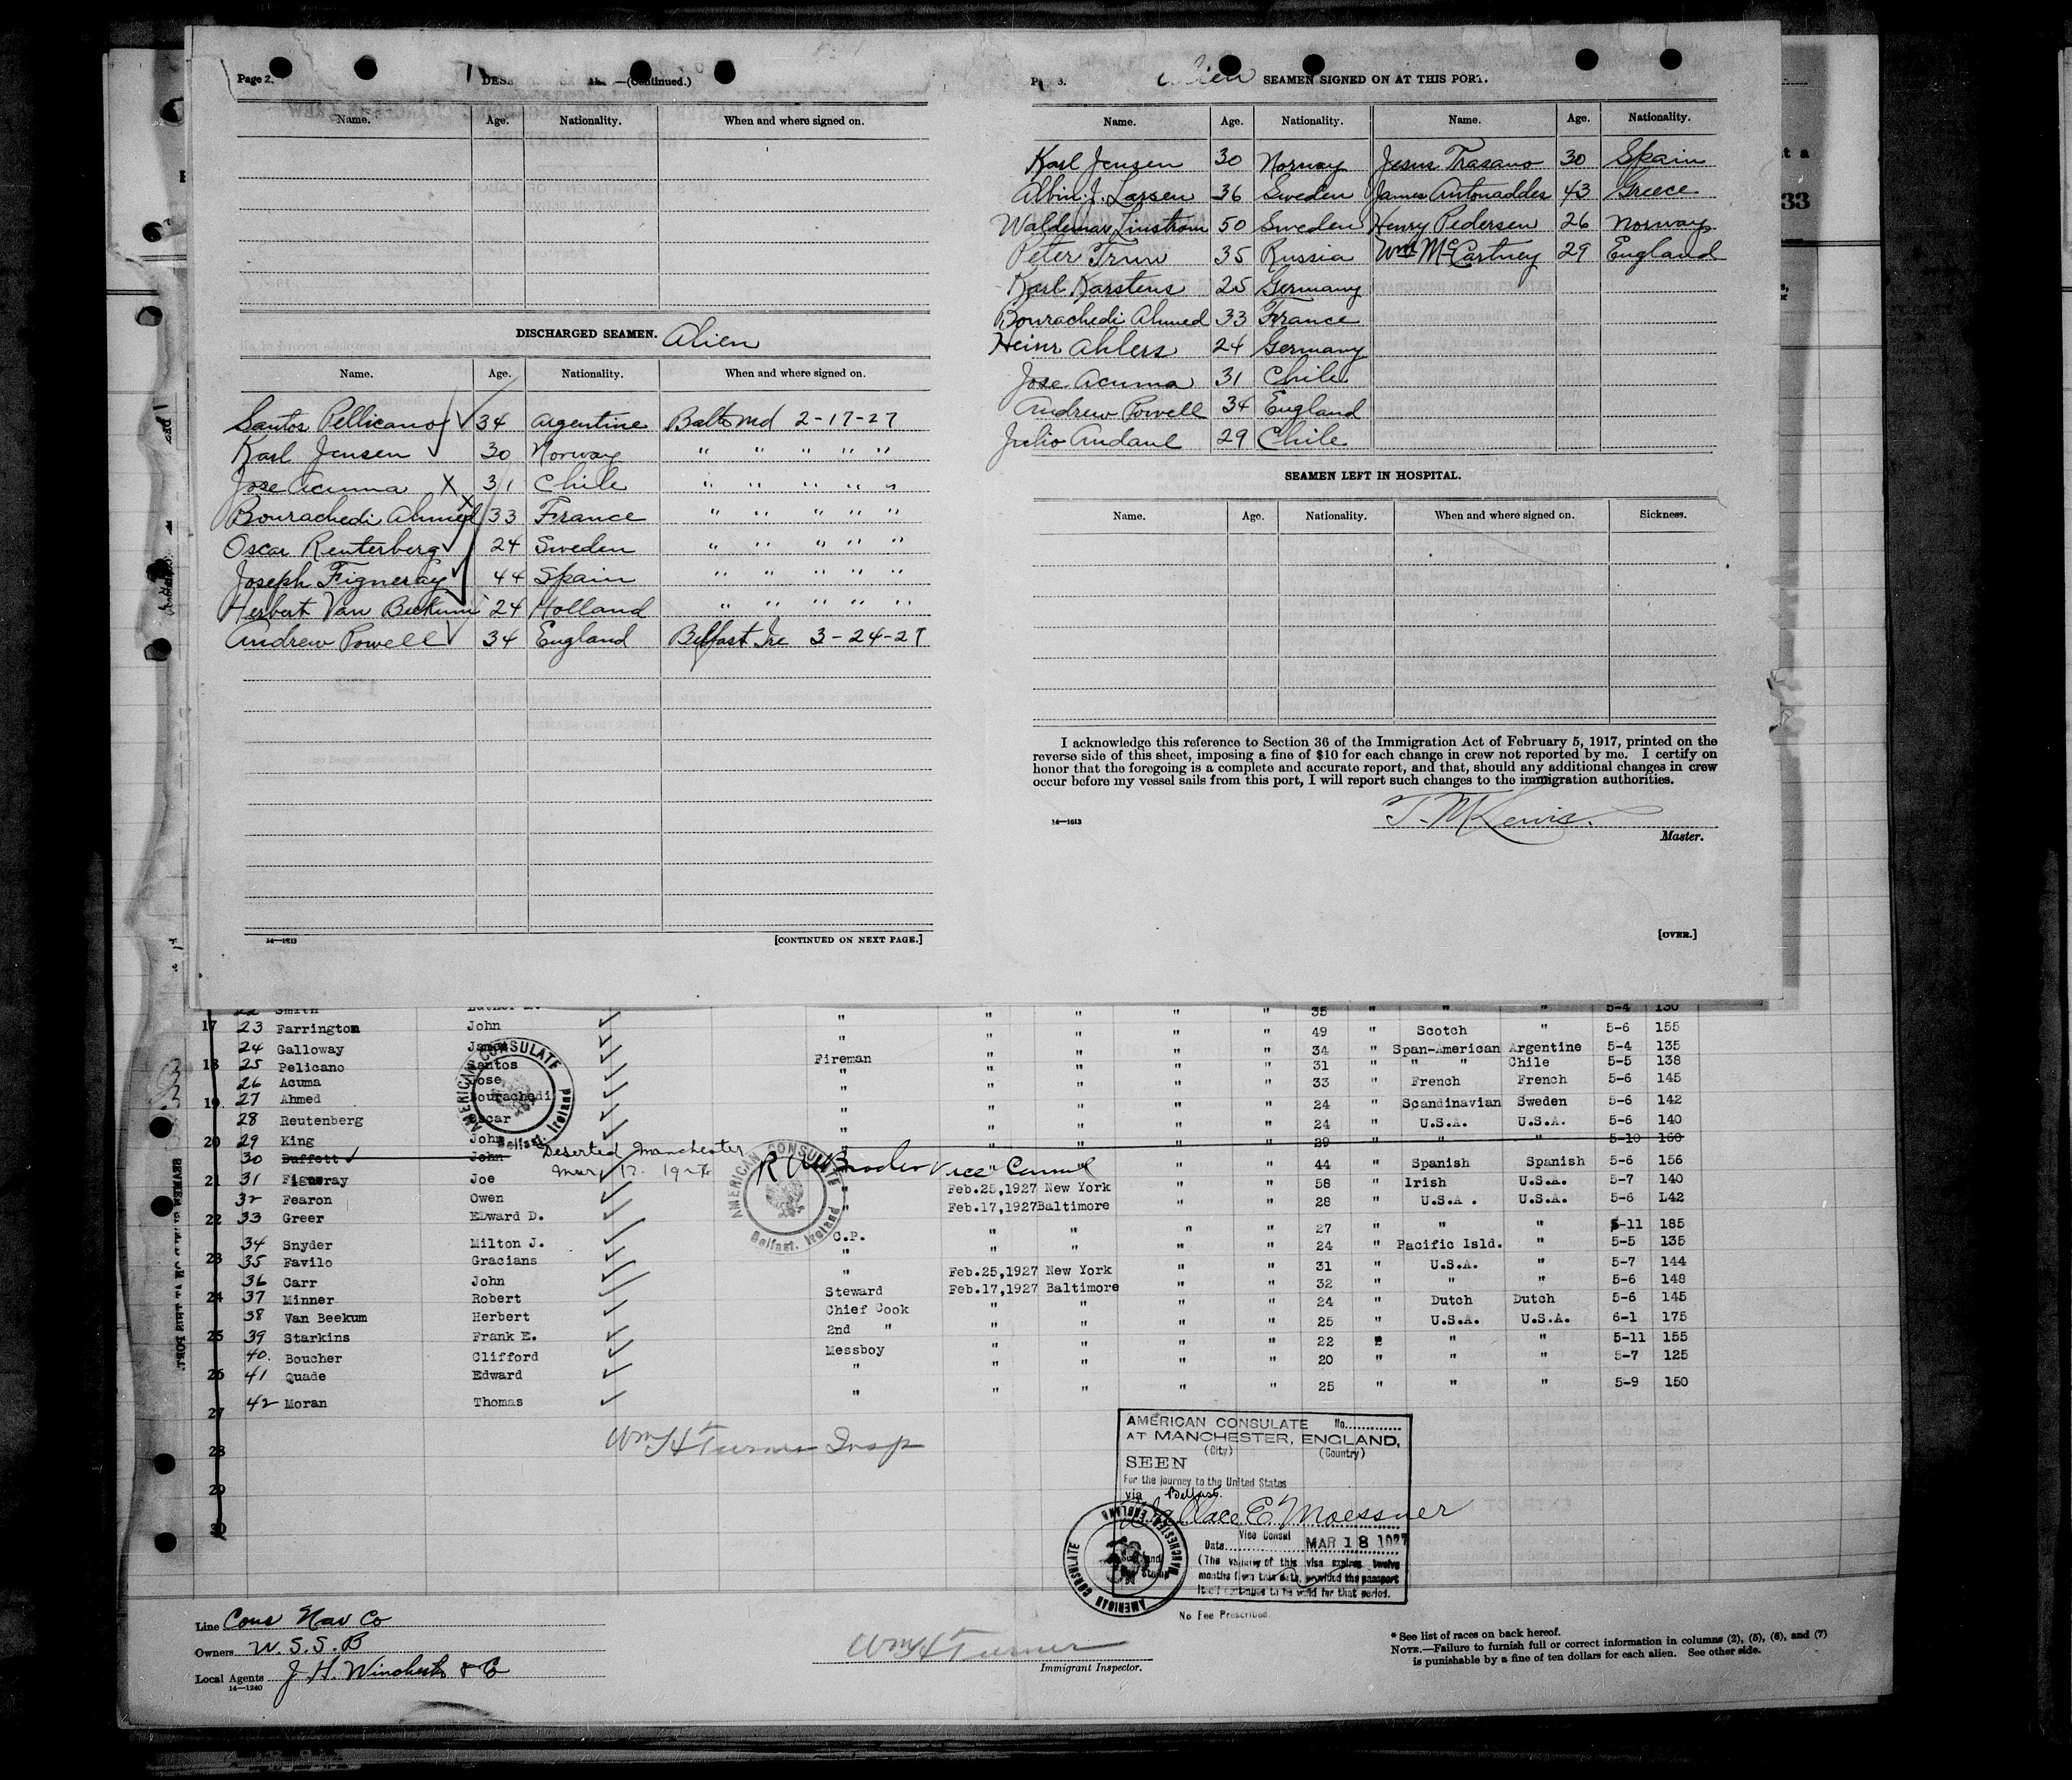 Page 2.
—(Continued.)
Name. Age. Nationality. When and where signed on.
DISCHARGED SEAMEN. Alien
Name. Age. Nationality. When and where signed on.
Santos Pellicano 34 Argentine Balto Md 2-17-27
Karl Jensen 30 Norway " " " " "
Jose Acuma X 31 Chile " " " " "
Bourachedi Ahmed X 33 France " " " " "
Oscar Renterberg 24 Sweden " " " " "
Joseph Figneray 44 Spain " " " " "
Herbert Van Beekum 24 Holland " " " " "
Andrew Powell 34 England Belfast Ire 3-24-27
14—1613
[CONTINUED ON NEXT PAGE.]
3. Alien SEAMEN SIGNED ON AT THIS PORT.
Name. Age. Nationality. Name. Age. Nationality.
Karl Jensen 30 Norway Jesus Trasano 30 Spain
Albin J. Larsen 36 Sweden James Antonaddes 43 Greece
Waldemar Linstrom 50 Sweden Henry Pedersen 26 Norway
Peter Trun 35 Russia Wm McCartney 29 England
Karl Karstens 25 Germany
Bourachedi Ahmed 33 France
Heinr Ahlers 24 Germany
Jose Acuma 31 Chile
Andrew Powell 34 England
Julio Andaul 29 Chile
SEAMEN LEFT IN HOSPITAL.
Name. Age. Nationality. When and where signed on. Sickness.
I acknowledge this reference to Section 36 of the Immigration Act of February 5, 1917, printed on the
reverse side of this sheet, imposing a fine of $10 for each change in crew not reported by me. I certify on
honor that the foregoing is a complete and accurate report, and that, should any additional changes in crew
occur before my vessel sails from this port, I will report such changes to the immigration authorities.
T. M Lewis.
14—1613
Master.
[OVER.]
33
22 Smith Luther " " " " " 35 " " " 5-4 130
17 23 Farrington John " " " " " 49 " Scotch " 5-6 155
24 Galloway James Fireman " " " " 34 " Span-American Argentine 5-4 135
18 25 Pelicano Santos " " " " " 31 " " " Chile 5-5 138
26 Acuma Jose " " " " " 33 " French French 5-6 145
19 27 Ahmed Bourachedi " " " " " 24 " Scandinavian Sweden 5-6 142
28 Reutenberg Oscar " " " " " 24 " U.S.A. U.S.A. 5-6 140
20 29 King John " " " " " 29 " " " 5-10 160
30 Buffett John Deserted Manchester
Mar 17. 1927 Vice Consul " " 44 " Spanish Spanish 5-6 156
21 31 Figueray Joe " Feb.25,1927 New York " " 58 " Irish U.S.A. 5-7 140
32 Fearon Owen " Feb.17,1927 Baltimore " " 28 " U.S.A. U.S.A. 5-6 L42
22 33 Greer EDward D. C.P. " " " " 27 " " " 5-11 185
34 Snyder Milton J. " " " " " 24 " Pacific Isld. " 5-5 135
23 35 Favilo Gracians " Feb.25,1927 New York " " 31 " U.S.A. " 5-7 144
36 Carr John Steward Feb.17,1927 Baltimore " " 32 " " " 5-6 148
24 37 Minner Robert Chief Cook " " " " 24 " Dutch Dutch 5-6 145
38 Van Beekum Herbert 2nd " " " " " 25 " U.S.A. U.S.A. 6-1 175
25 39 Starkins Frank E. Messboy " " " " 22 " " " 5-11 155
40. Boucher Clifford " " " " " 20 " " " 5-7 125
26 41 Quade Edward " " " " " 25 " " " 5-9 150
42 Moran Thomas
27
28
29
30
Wm H Turner Insp
AMERICAN CONSULATE
Belfast, Ireland
AMERICAN CONSULATE
Belfast, Ireland
AMERICAN CONSULATE No.
AT MANCHESTER, ENGLAND,
(City) (Country)
SEEN
For the journey to the United States
via Belfast.
Wallace E. Moessner
Vice Consul
Date MAR 18 1927
(The validity of this visa expires twelve
months from this date, provided the passport
itself continues to be valid for that period.
AMERICAN CONSULATE MANCHESTER ENGLAND
No Fee Prescribed.
Line Cons Nav Co
Owners W.S.S.B
Local Agents J. H. Winchester & Co
14—1240
Wm H Turner
Immigrant Inspector.
* See list of races on back hereof.
NOTE.—Failure to furnish full or correct information in columns (2), (5), (6), and (7)
is punishable by a fine of ten dollars for each alien. See other side.